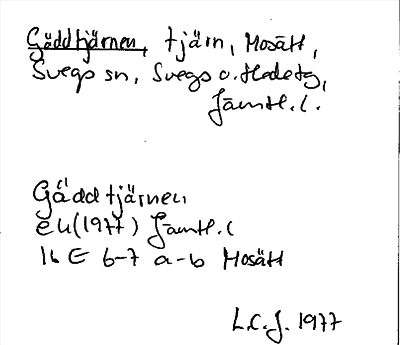 Gäddtjärnen, tjärn, Mosätt,
Svegs sn, Svegs o. Hede tg,
Jämtl. l.
Gäddtjärnen
ek (1977) Jämtl. l
16 E 6-7 a-b Mosätt
L.C.J. 1977